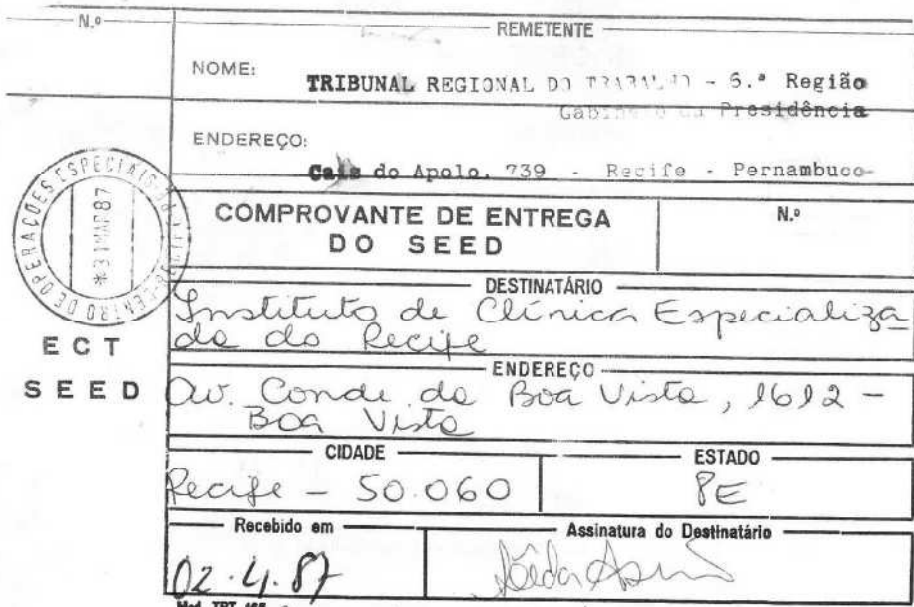 N.º
REMETENTE
NOME:
TRIBUNAL REGIONAL DO TRABALHO - 6.ª Região
Gabinete da Presidência
ENDEREÇO:
Cais do Apolo, 739 - Recife - Pernambuco
COMPROVANTE DE ENTREGA
DO SEED
N.º
CENTRO DE OPERAÇÕES ESPECIAIS
*31MAR87
ECT
SEED
DESTINATÁRIO
Instituto de Clínica Especializa
da do Recife
ENDEREÇO
Av. Conde da Boa Vista, 1612 -
Boa Vista
CIDADE
Recife - 50.060
ESTADO
PE
Recebido em
02.4.87
Assinatura do Destinatário
Mod. TRT 165